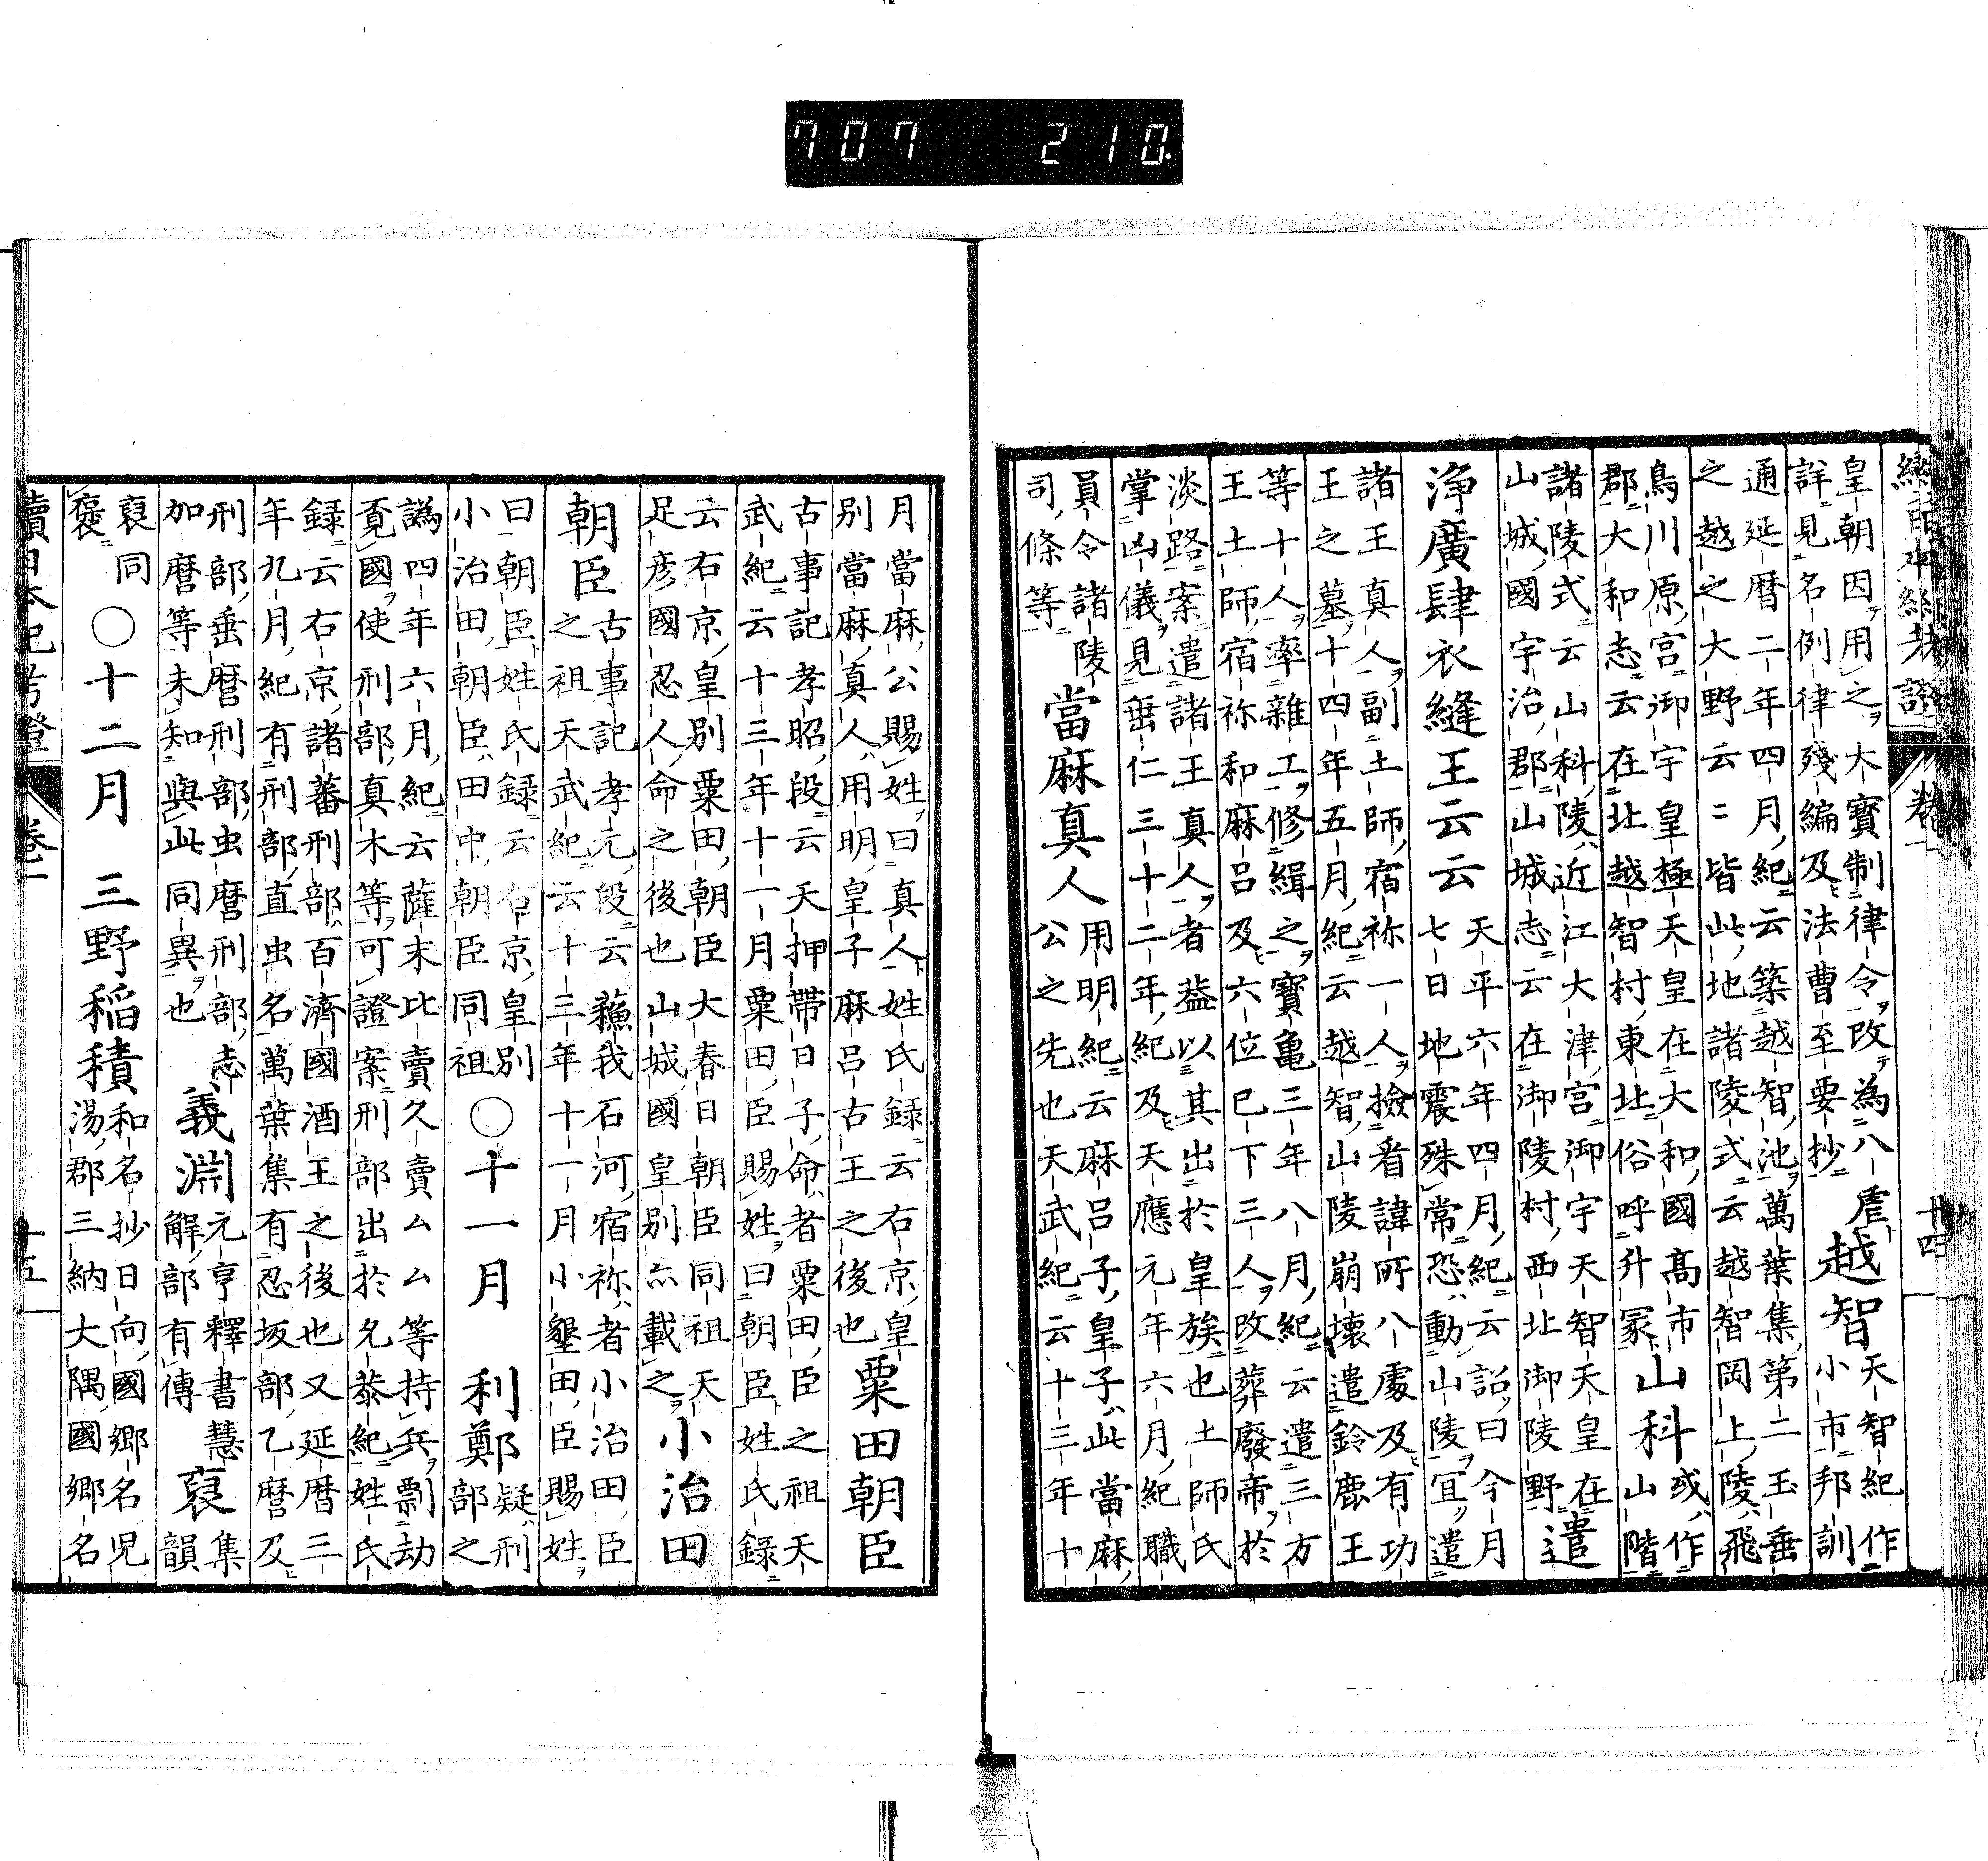 707 210.
皇朝因用之大寶制律令改為八虐
詳見名例律殘編及法曹至要抄
越智
天智紀作
小市邦訓
通延暦二年四月紀云築越智池萬葉集第二玉垂
之越之大野云二皆此地諸陵式云越智岡上陵飛
鳥川原宮御宇皇極天皇在大和國高市
郡大和志云在北越智村東北俗呼升冢
山科
或作
山階
諸陵式云山科陵近江大津宮御宇天智天皇在
山城國宇治郡山城志云在御陵村西北御陵野
遣
浄廣肆衣縫王云云
天平六年四月紀云詔曰今月
七日地震殊常恐動山陵宜遣
諸王真人副土師宿祢一人撿看諱所八處及有功
王之墓十四年五月紀云越智山陵崩壞遣鈴鹿王
等十人率雜工修緝之寶亀三年八月紀云遣三方
王土師宿祢和麻呂及六位已下三人改葬廢帝於
淡路案遣諸王真人者蓋以其出於皇族也土師氏
掌凶儀見垂仁三十二年紀及天應元年六月紀職
員令諸陵
司條等
當麻真人
用明紀云麻呂子皇子此當麻
公之先也天武紀云十三年十
月當麻公賜姓曰真人姓氏録云右京皇
別當麻真人用明皇子麻呂古王之後也
粟田朝臣
古事記孝昭段云天押帶日子命者粟田臣之祖天
武紀云十三年十一月粟田臣賜姓曰朝臣姓氏錄
云右京皇別粟田朝臣大春日朝臣同祖天
足彦國忍人命之後也山城國皇別亦載之
小治田
朝臣
古事記孝元段云蘓我石河宿祢者小治田臣
之祖天武紀云十三年十一月小墾田臣賜姓
曰朝臣姓氏録云右京皇別
小治田朝臣田中朝臣同祖
○十一月 利鄭
疑刑
部之
譌四年六月紀云薩末比賣久賣ムム等持兵剽劫
覓國使刑部真木等可證案刑部出於允恭紀姓氏
録云右京諸蕃刑部百濟國酒王之後也又延暦三
年九月紀有刑部直虫名萬葉集有忍坂部乙麿及
刑部垂麿刑部虫麿刑部志
加麿等未知與此同異也
義淵
元亨釋書慧
解部有傳
裒
集韻
裒同
褒
○十二月 三野稲積
和名抄日向國郷名児
湯郡三納大隅國郷名
續日本紀考證 卷一 十四
續日本紀考證 卷一 十五